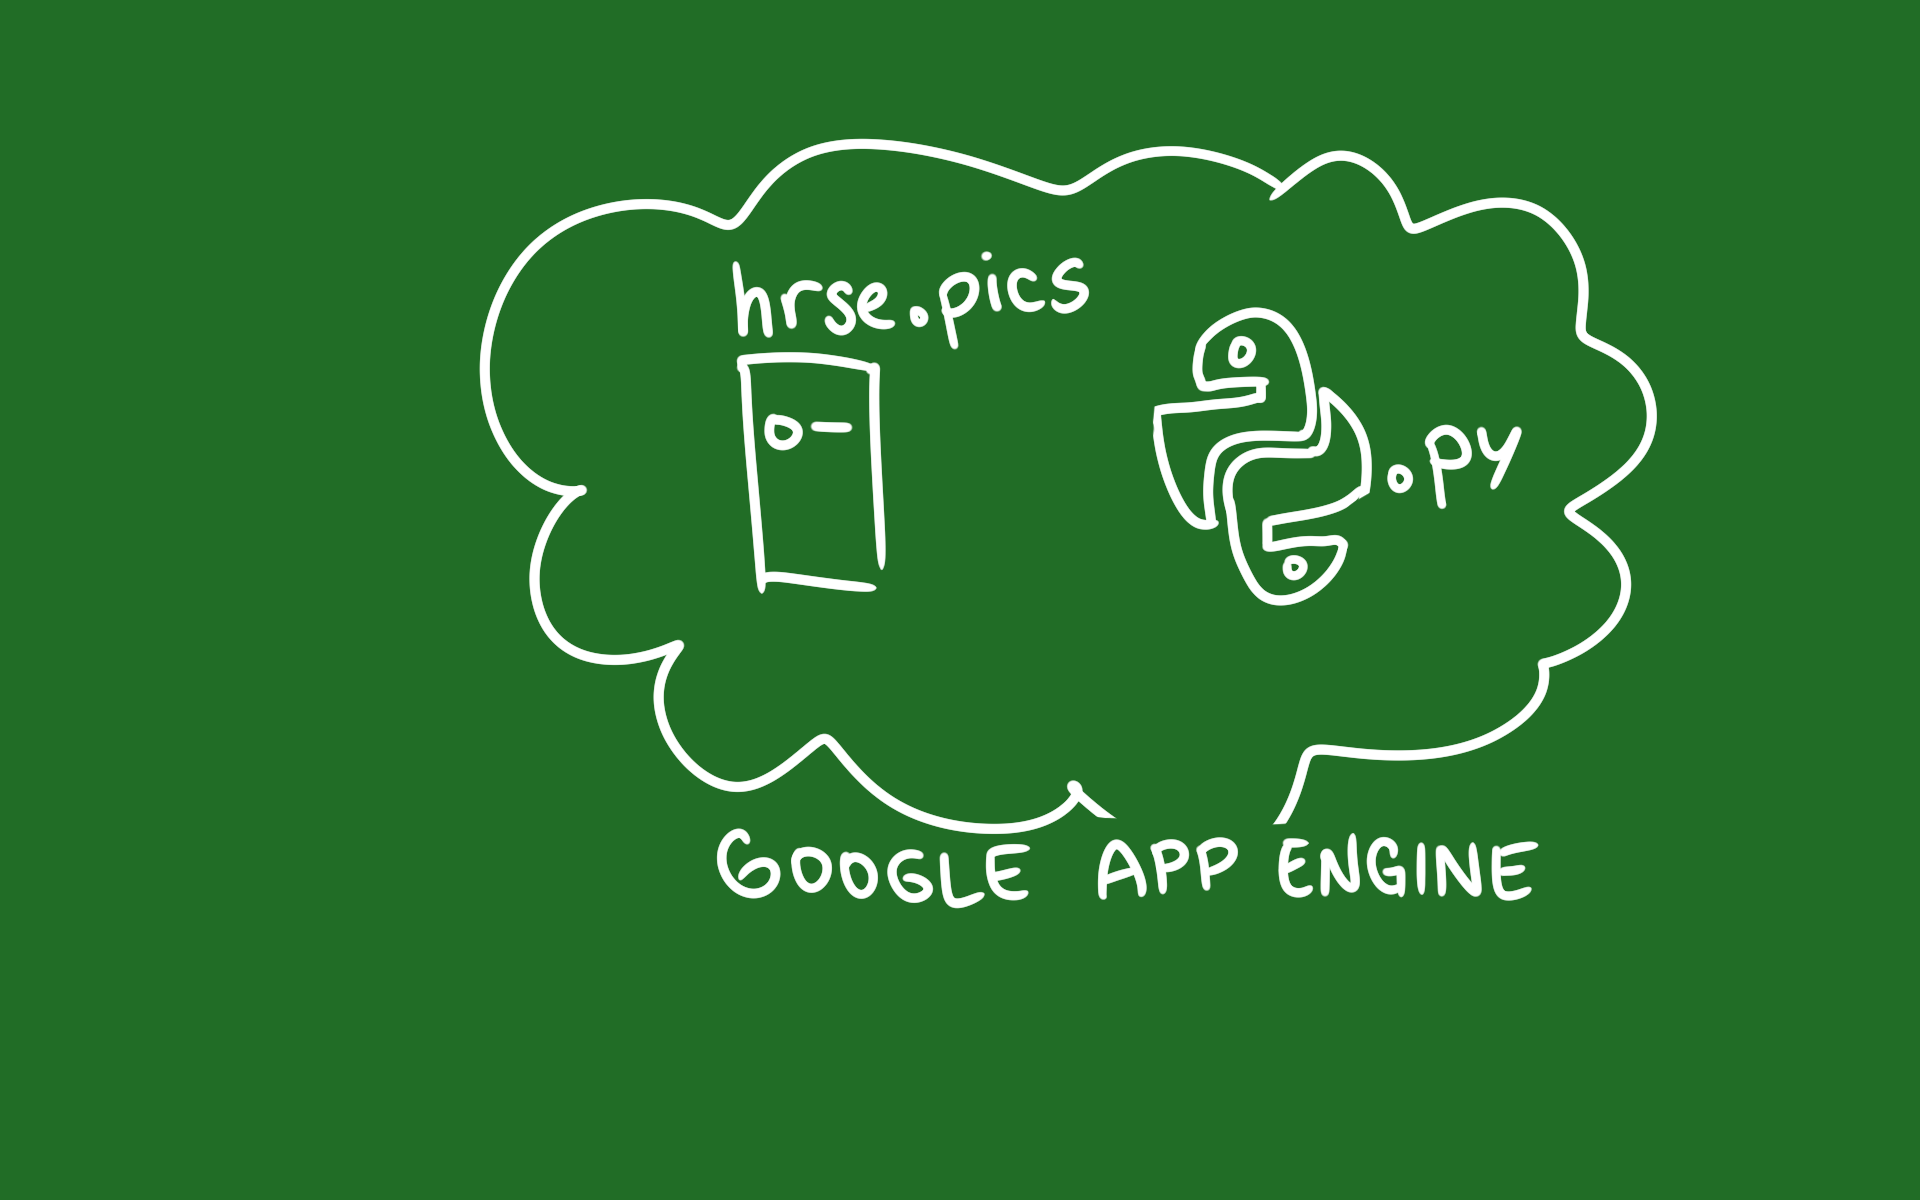 hrse.pics
.py
GOOGLE APP ENGINE